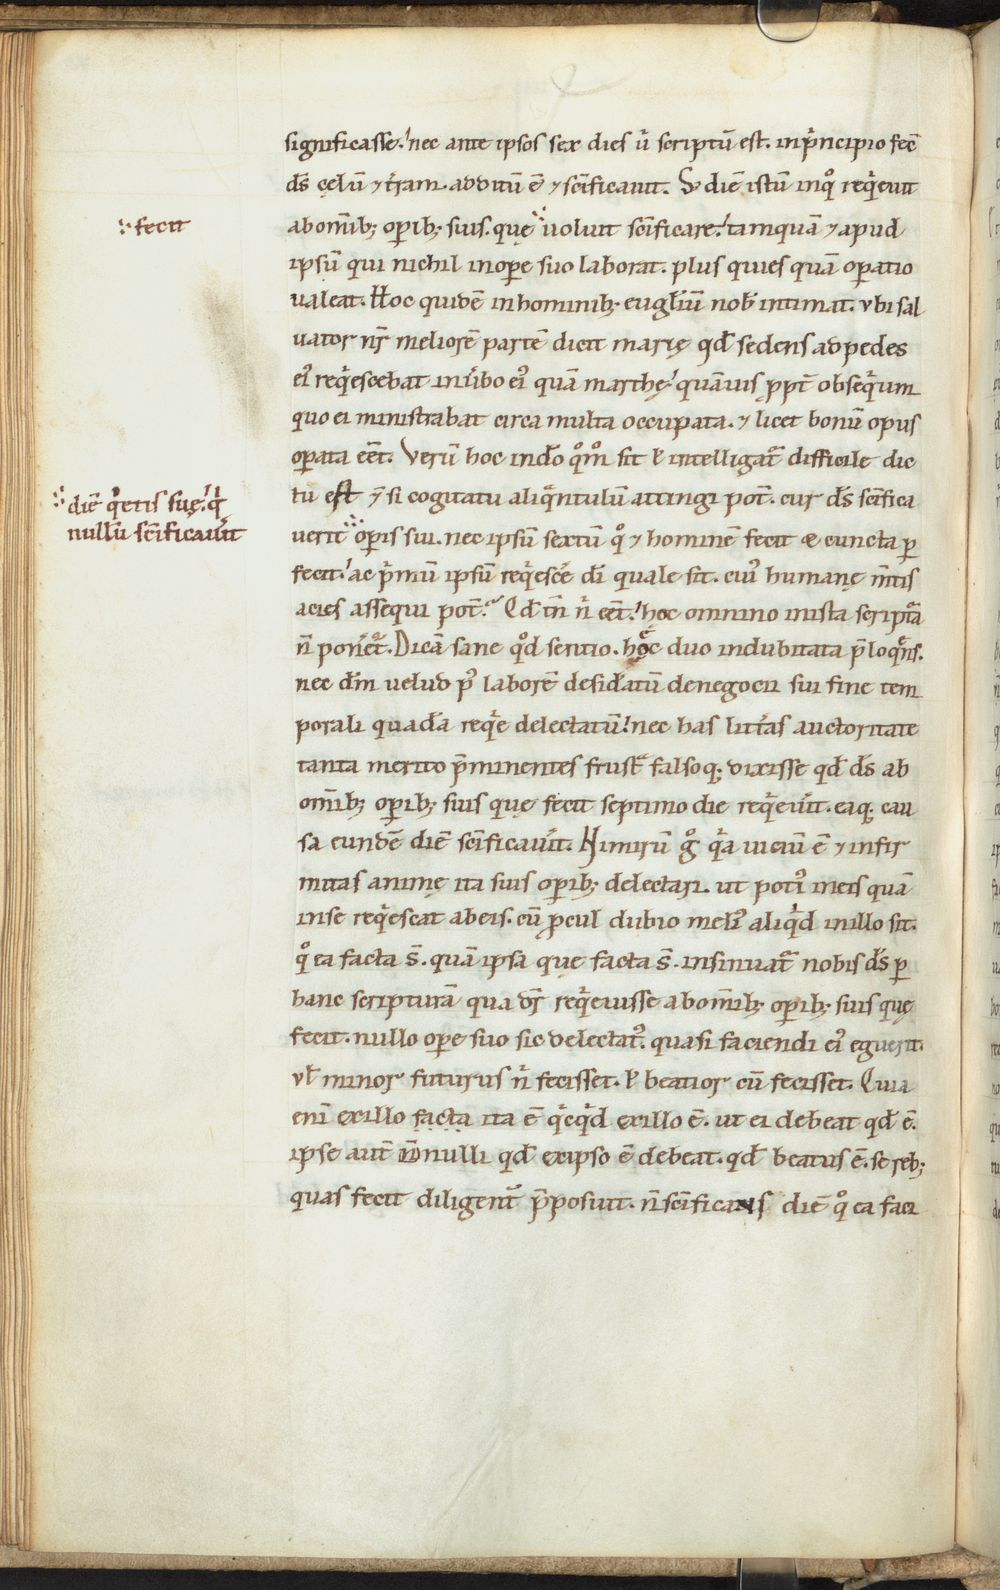 significasse. nec ante ipsos sex dies u̅ scriptu̅ est. in p̅ncipio fec̅
ds̅ cęlu̅ ⁊ t̅ram. additu̅ e̅ ⁊ sc̅ificauit. S; die̅ istu̅ in qͦ req̅euit
ab om̅ib; op̅ib; suis. quę uoluit sc̅ificare. tamqua̅ ⁊ apud
ipsu̅ qui nichil in op̅e suo laborat. plus quies qua̅ op̅atio
ualeat. Hoc quide̅ in hominib; eugl̅iu̅ nob̅ intimat. ubi sal
uator nr̅ meliore̅ parte̅ dicit marię qd̅ sedens ad pedes
ei᾽ req̅escebat in u̅bo ei᾽ qua̅ marthę. qua̅uis ppt̅ obseq̅ium
quo ei ministrabat circa multa occupata. ⁊ licet bonu̅ opus
op̅ata ee̅t. Veru̅ hoc in do̅ qͦm̅o sit ł intelligat᷑ difficile dic
tu est ⁊̅ si cogitatu aliq̅ntulu̅ attingi pot̅. cur ds̅ sc̅ifica
uerit op̅is sui. nec ipsu̅ sextu̅ qͦ ⁊ homine̅ fecit & cuncta p̲
fecit. ac p̅mu̅ ipsu̅ req̅esce̅ di̅ quale sit. cui᾽ humanę m̅tis
acies assequi pot̅. Qd̅ tm̅ n̅ ee̅t. hęc omnino iusta script᷑a
n̅ poneret᷑. Dica̅ sane qͦd sentio. hoc duo indubitata p̅loq̅ns.
nec dm̅ uelud p᾽ labore̅ desid̅atu̅ de negocii sui fine tem
porali quada̅ req̅e delectatu̅. nec has litt̅as auctoritate
tanta merito p̅minentes frust̅ falsoq; dixisse qd̅ ds̅ ab
om̅ib; op̅ib; suis quę fecit septimo die req̅eu̅it. eaq; cau
sa eunde̅ die̅ sc̅ificau̅it. Nimiru̅ gͦ q̅a uiciu̅ e̅ ⁊ infir
mitas animę ita suis op̅ib; delectari. ut poti᾽ in eis qua̅
in se req̅escat ab eis. cu̅ p̲cul dubio meli᾽ aliq̅d in illo sit.
qͦ ea facta s̅. qua̅ ipsa quę facta s̅. insinuat᷑ nobis ds̅ p̲
hanc scriptura̅ qua dr̅ req̅euisse ab om̅ib; op̅ib; suis quę
fecit. nullo op̅e suo sic delectat᾽. quasi faciendi ei᾽ eguerit.
uł minor futurus n̅ fecisset. ł beatior cu̅ fecisset. Quia
eni̅ ex illo facta ita e̅ q̅cq̅d ex illo e̅. ut ei debeat qd̅ e̅.
ipse aut̅ nulli qd̅ ex ipso e̅ debeat. qd̅ beatus e̅. se reb;
quas fecit diligent᾽ p̅posuit. n̅ sc̅ificans die̅ qͦ ea faci
fecit
die̅ q̅etis suę. q̅
nullu̅ sc̅ificau̅it